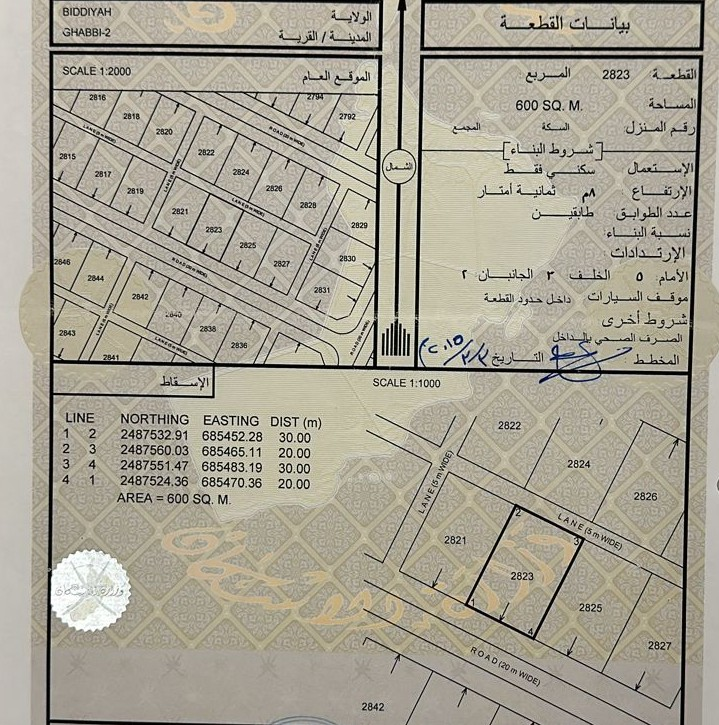 BIDDIYAH
الولاية
GHABBI-2
المدينة / القرية
بيانات القطعة
SCALE 1:2000
الموقع العام
2816
2818
2820
2794
2792
ROAD (20 m WIDE)
LANE (5 m WIDE)
2822
2824
2826
2828
2815
2817
2819
LANE (5 m WIDE)
LANE (5 m WIDE)
2829
2821
2823
2825
2827
LANE (5 m WIDE)
2830
2831
ROAD (20 m WIDE)
2846
2844
2842
2840
2838
2836
2843
2841
LANE (5 m WIDE)
LANE (5 m WIDE)
الشمال
القطعة 2823 المربع
المساحة 600 SQ. M.
رقم المنزل: السكة المجمع
شروط البناء
الإستعمال سكني فقط
الإرتفاع ٨م ثمانية أمتار
عدد الطوابق طابقين
نسبة البناء
الإرتدادات
الأمام ٥ الخلف ٣ الجانبان ٢
موقف السيارات داخل حدود القطعة
شروط أخرى
الصرف الصحي بالداخل
المخطط التاريخ
الإسقاط
SCALE 1:1000
LINE NORTHING EASTING DIST (m)
1 2 2487532.91 685452.28 30.00
2 3 2487560.03 685465.11 20.00
3 4 2487551.47 685483.19 30.00
4 1 2487524.36 685470.36 20.00
AREA = 600 SQ. M.
2822
2824
2826
LANE (5 m WIDE)
LANE (5 m WIDE)
2
3
2821
2823
2825
2827
1
4
ROAD (20 m WIDE)
2842